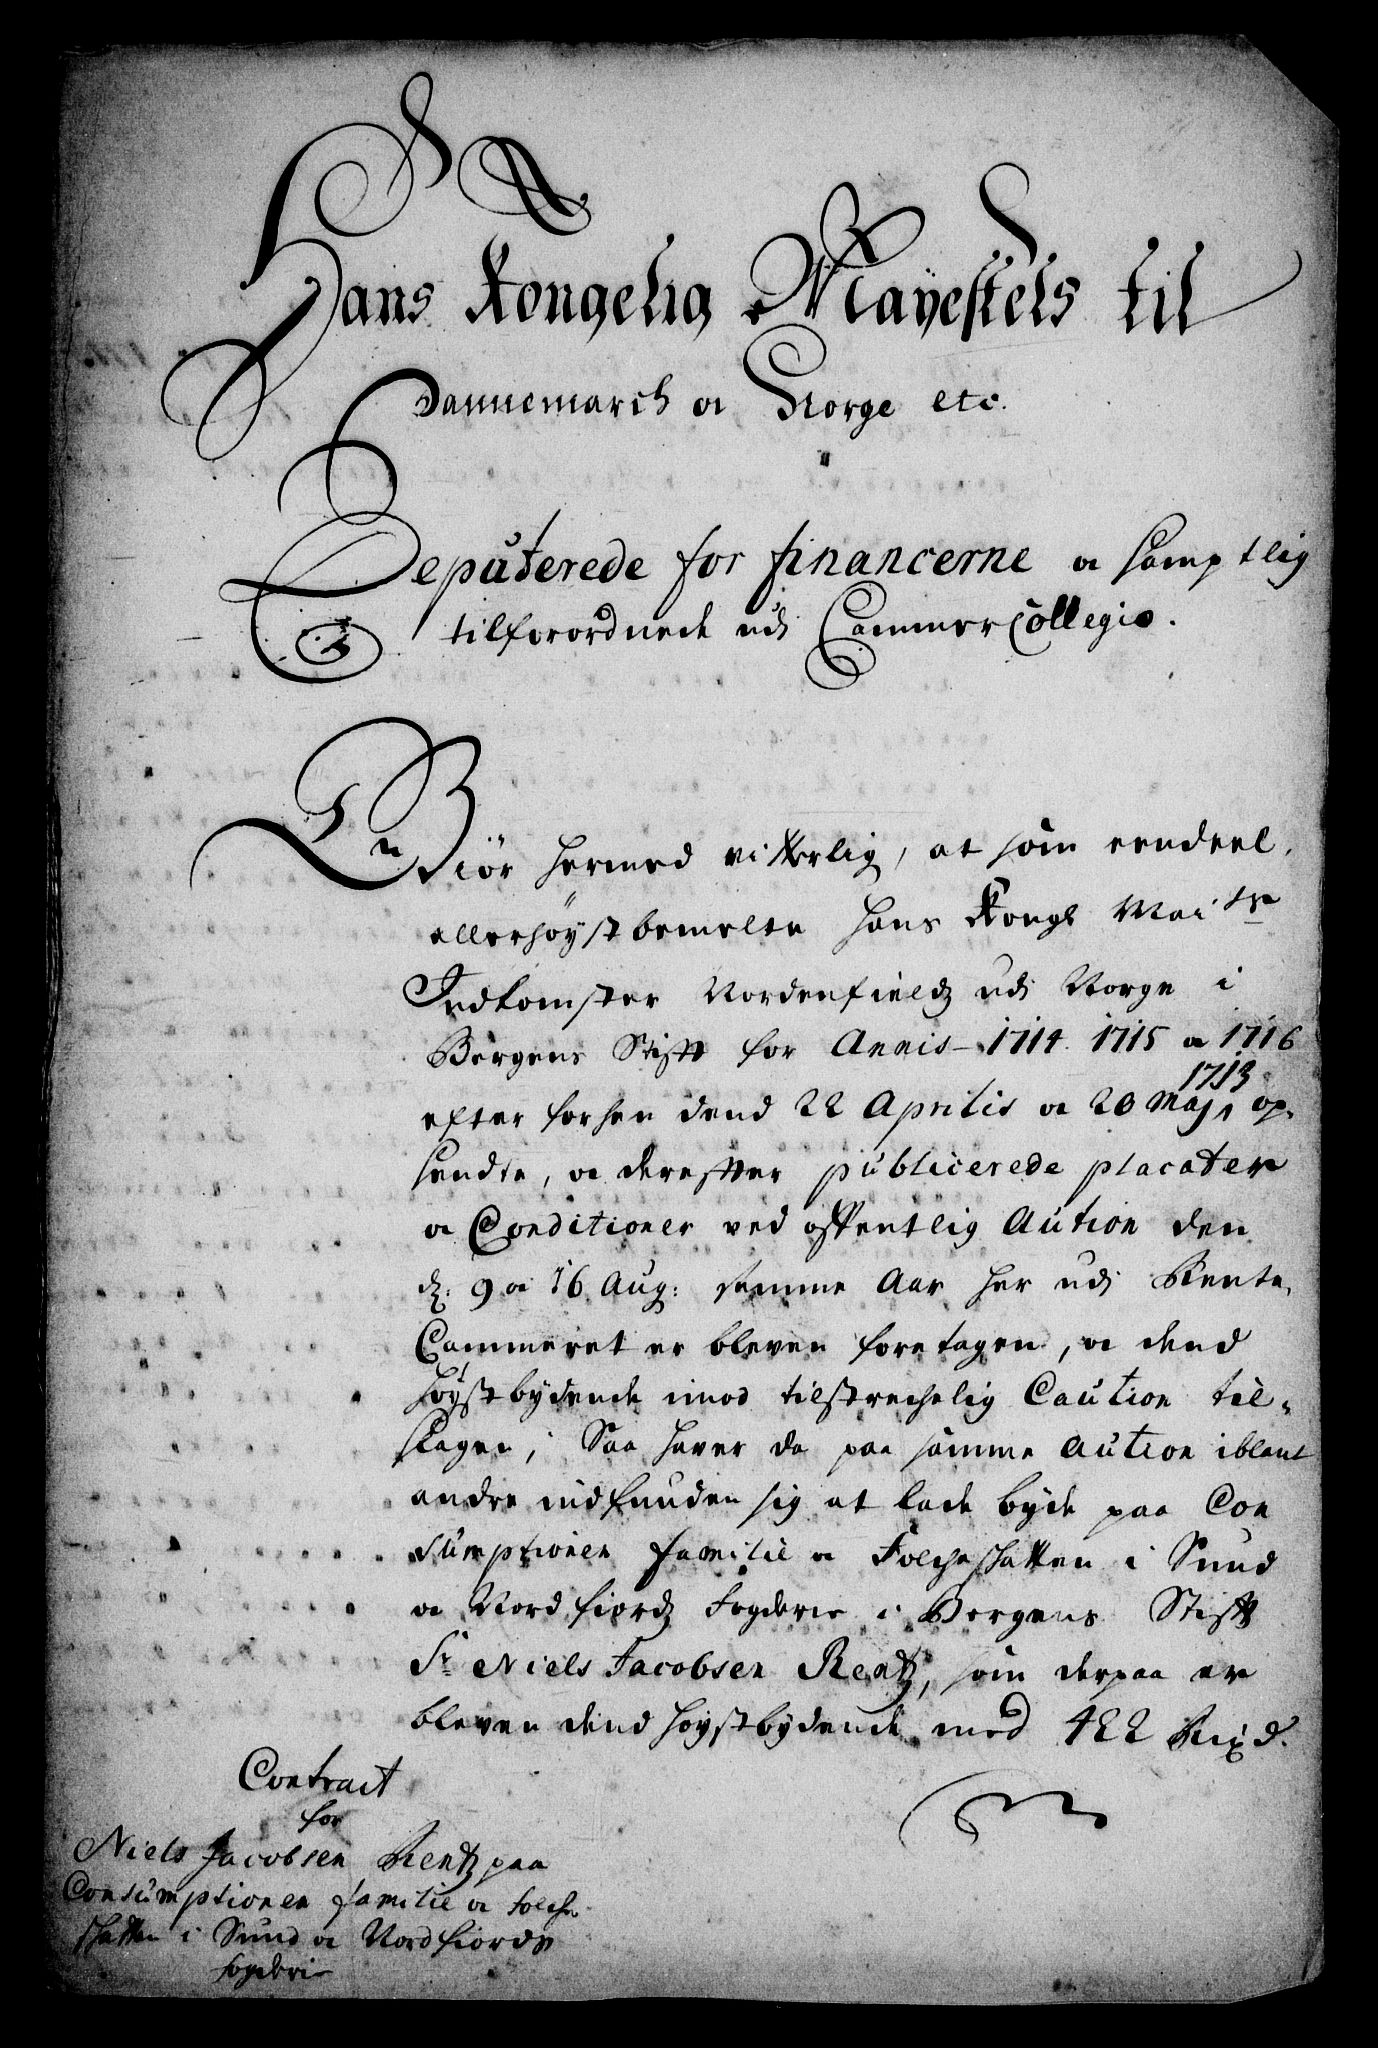 Hans Kongelig Mayestets til
Dannemarch og Norge etc.
Deputerede for financerne og samptlig
tilforordnede udi CammerCollegio.
Giör hermed vitterlig, at som eendeel
allerhöystbemelte Hans Kongl Maitts
Indkomster Nordenfieldz udi Norge i
Bergens Stift for Annis 1714. 1715 og 1716
1713
efter forhen dend 22 Aprilis og 20 Maji op-
sendte, og derefter publicerede placater
og Conditioner ved offentlig Aution den
d. 9 og 16 Aug: samme Aar her udi Rente-
Cammeret er bleven foretagen, og dend
höystbydende imod tilstrechelig Caution til-
slagen, Saa haver da paa samme Aution iblant
andre indfunden sig at lade byde paa Con
sumptionen familie og Folcheskatten i Sund
og Nordfiordz Fogderie i Bergens Stift
Sr Niels Jacobsen Rentz, som derpaa er
bleven dend höystbydende med 422 Rixd.
Contract
for
Niels Jacobsen Rentz paa
Consumptionen familie og folche-
skatten i Sund og Nordfiords
fogderie